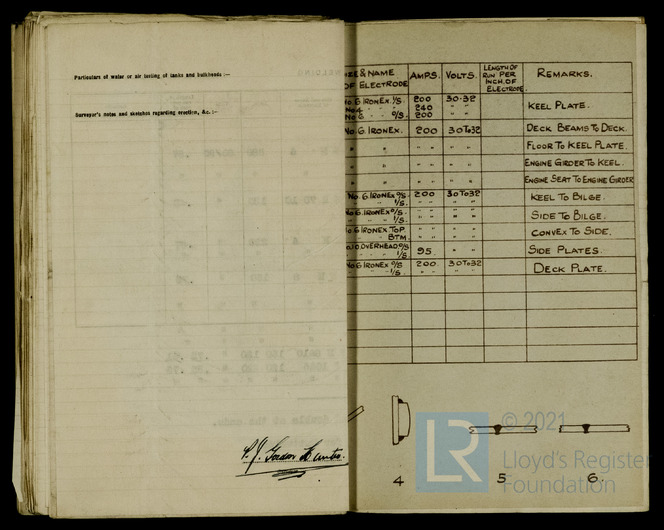 Particulars of water or air testing of tanks and bulkheads :—
Surveyor's notes and sketches regarding erection, &c. :—
& NAME OF ELECTRODE AMPS. VOLTS. LENGTH OF RUN PER INCH. OF ELECTRODE. REMARKS.
No. 6 IRONEX. I/S. 200 30·32 KEEL PLATE.
No 4 " " 240 " "
No 6 " O/S. 200 " "
No. 6 IRONEX. 200 30 To 32 DECK BEAMS TO DECK.
" " " " " " FLOOR TO KEEL PLATE.
" " " " " " ENGINE GIRDER TO KEEL.
" " " " " " ENGINE SEAT TO ENGINE GIRDER
No. 6 IRONEX O/S. 200 30 To 32 KEEL TO BILGE.
" " I/S. " " " "
No 6 IRONEX O/S. " " " " SIDE TO BILGE.
" " I/S. " " " "
No 6 IRONEX TOP " " " " CONVEX TO SIDE.
" " BTM. " " " "
OVERHEAD O/S 95 " " SIDE PLATES.
" " I/S.
No 6 IRONEX O/S 200 30 To 32 DECK PLATE.
" " I/S. " " " "
4 5 6.
LR
© 2021
Lloyd's Register
Foundation